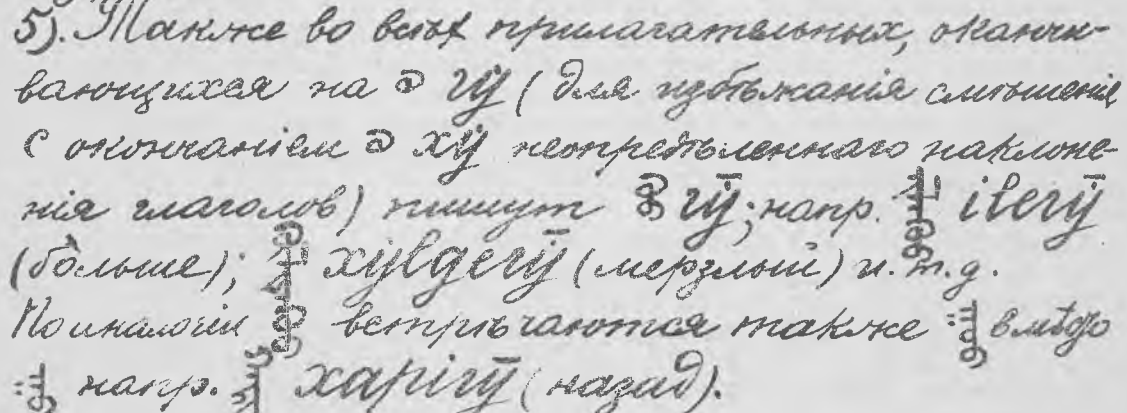 5). Также во всѣх прилагательных, оканчи-
вающихся на гӱ̄ (для избѣжанія смѣшенія
с окончаніем хӱ неопредѣленнаго наклоне-
нія глаголов) пишут гӱ̄; напр. ілегӱ̄
(больше); хӱлдегӱ̄ (мерзлый) и. т. д.
По аналогіи встрѣчаются также вмѣсто
напр. харігӯ (назад).